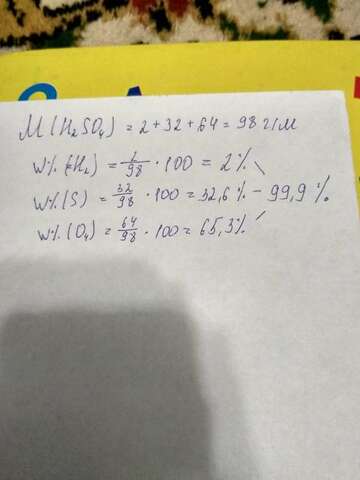 M(H₂SO₄) = 2+32+64 = 98 г/м
W%(H₂) = 2/98 · 100 = 2%
W%(S) = 32/98 · 100 = 32,6% - 99,9%
W%(O₄) = 64/98 · 100 = 65,3%